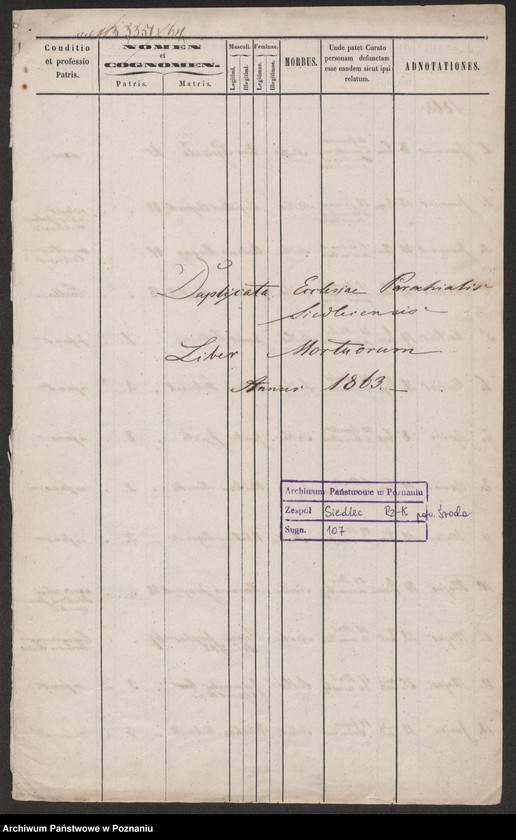 Conditio
et professio
Patris.
NOMEN
et
COGNOMEN.
Patris.
Matris.
Masculi.
Legitimi.
Illegitimi.
Feminae.
Legitimae.
Illegitimae.
MORBUS.
Unde patet Curato
personam defunctam
esse eandem sicut ipsi
relatum.
ADNOTATIONES.
Duplicata Ecclesiae Parochialis
Siedlecensis
Liber Mortuorum
Annus 1863.
Archiwum Państwowe w Poznaniu
Zespół Siedlec Rz-K pow. Środa
Sygn. 107
Archiwum Państwowe w Poznaniu